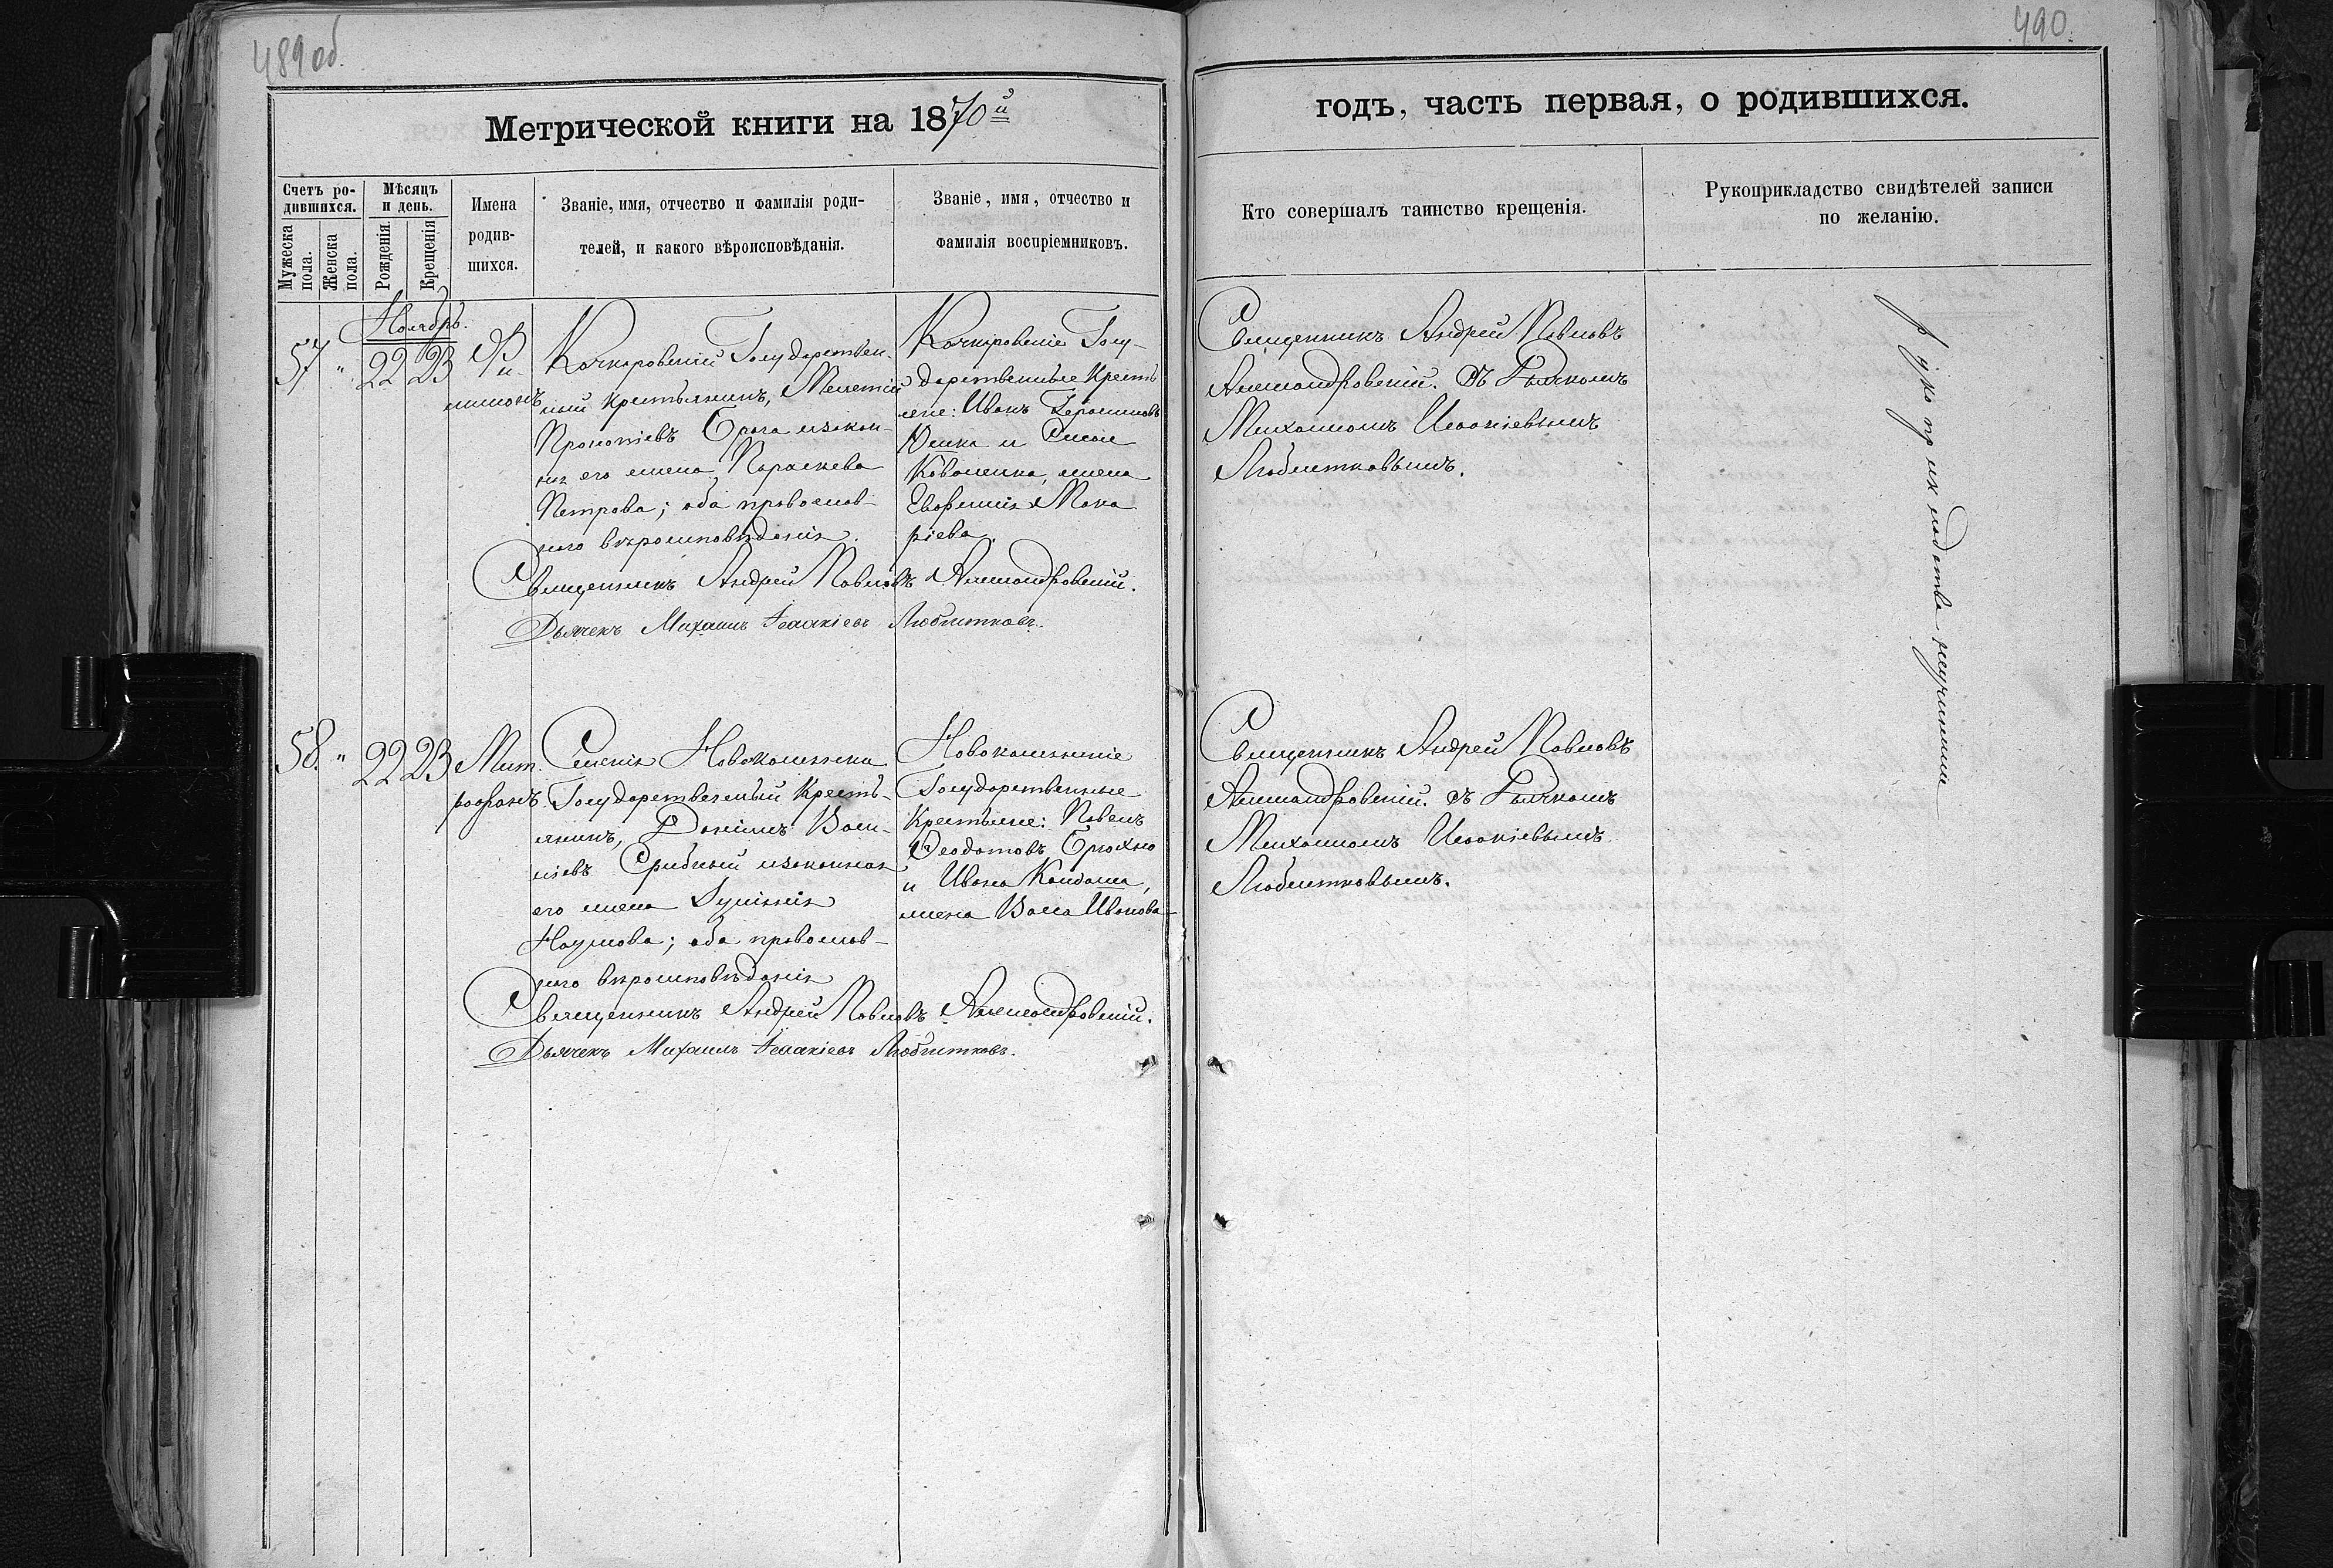 489 об.
490
Метрической книги на 1870й
годъ, часть первая, о родившихся.
Счетъ ро-
дившихся.
Мужеска пола.
Женска пола.
Мѣсяцъ
и день.
Рожденія.
Крещенія
Имена
родив-
шихся.
Званіе, имя, отчество и фамилія роди-
телей, и какого вѣроисповѣданія.
Званіе, имя, отчество и
фамилія воспріемниковъ.
Кто совершалъ таинство крещенія.
Рукоприкладство свидѣтелей записи
по желанію.
Ноябрь.
57 " 22 23
Фи-
лимонъ
Государствен-
ный крестьянинъ, Мелетій
Прокопіевъ закон-
ная его жена Параскева
Петрова; оба православ-
наго вѣроисповѣданія.
Госу-
дарственные кресть
яне: Иванъ Герасимовъ
и
Коваленка, жена
Евфимія Мака
ріева.
Священникъ Андрей Павловъ Александровскій.
Дьячекъ Михаилъ Ісаакіевъ Любитковъ.
Священникъ Андрей Павловъ
Александровскій. съ Дьячкомъ
Михаиломъ Исаакіевымъ
Любитковымъ.
58. " 22 23
Мит
рофанъ
Селенія
Государственный Кресть-
янинъ, Даніилъ Васи-
ліевъ Срибный и законная
его жена Гликерія
Наумова; оба православ-
наго вѣроисповѣданія
Государственные
Крестьяне: Павелъ
Феодотовъ
и Ивана
жена Васса Иванова
Священникъ Андрей Павловъ Александровскій.
Дьячекъ Михаилъ Ісаакіевъ Любитковъ.
Священникъ Андрей Павловъ
Александровскій. съ Дьячкомъ
Михаиломъ Исаакіевымъ
Любитковымъ.